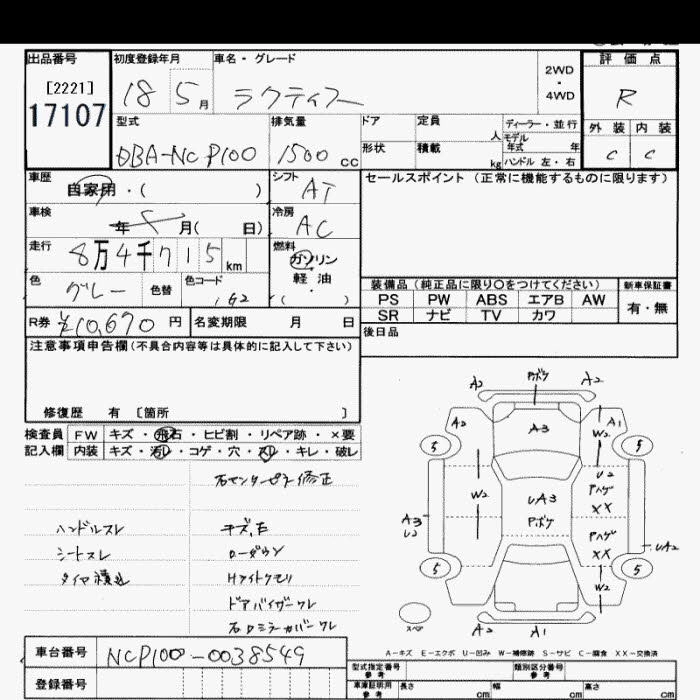 出品番号 初度登録年月 車名・グレード 評価点
[2221] 2WD ・ 4WD
17107 18 5月 ラクティス R
型式 排気量 ドア 定員 人 ディーラー・並行 外装 内装
モデル年式 年
DBA-NCP100 1500cc 形状 積載 kg ハンドル 左・右 C C
車歴 シフト セールスポイント(正常に機能するものに限ります)
自家用・( ) AT
車検 冷房
年 月( 日) AC
走行 燃料
8万4千715km ガソリン
軽油
( )
色 色替 色コード 装備品(純正品に限り○をつけてください) 新車保証書
グレー 1G2 PS PW ABS エアB AW 有・無
SR ナビ TV カワ
R券 ¥10,670円 名変期限 月 日 後日品
注意事項申告欄(不具合内容等は具体的に記入して下さい)
修復歴 有 [箇所 ]
検査員 FW キズ・飛石・ヒビ割・リペア跡・×要
記入欄 内装 キズ・汚レ・コゲ・穴・スレ・キレ・破レ
右センターピラー修正
ハンドルスレ キズ,E
シートスレ ローダウン
タイヤ積込 Hライトクモリ
ドアバイザークレ
右ドミラーカバークレ
A2 Pボケ A2
A2 A3 A1
W2
5 5
U2
W2 UA3 Pハゲ
XX
A3 Pボケ Pハゲ
U2 XX UA2
5 5
W2
スペア A2 A1
A-キズ E-エクボ U-凹み W-補修跡 S-サビ C-腐食 XX-交換済
車台番号 NCP100-0038549 型式指定番号 参考 類別区分番号 参考
登録番号 車庫証明用 参考 長さ cm 幅 cm 高さ cm